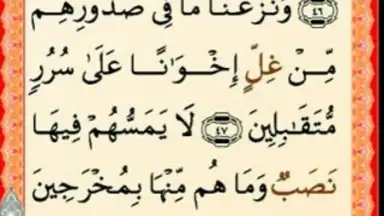 ﴿٤٦﴾ وَنَزَعْنَا مَا فِي صُدُورِهِم
مِّنْ غِلٍّ إِخْوَانًا عَلَىٰ سُرُرٍ
مُّتَقَابِلِينَ ﴿٤٧﴾ لَا يَمَسُّهُمْ فِيهَا
نَصَبٌ وَمَا هُم مِّنْهَا بِمُخْرَجِينَ